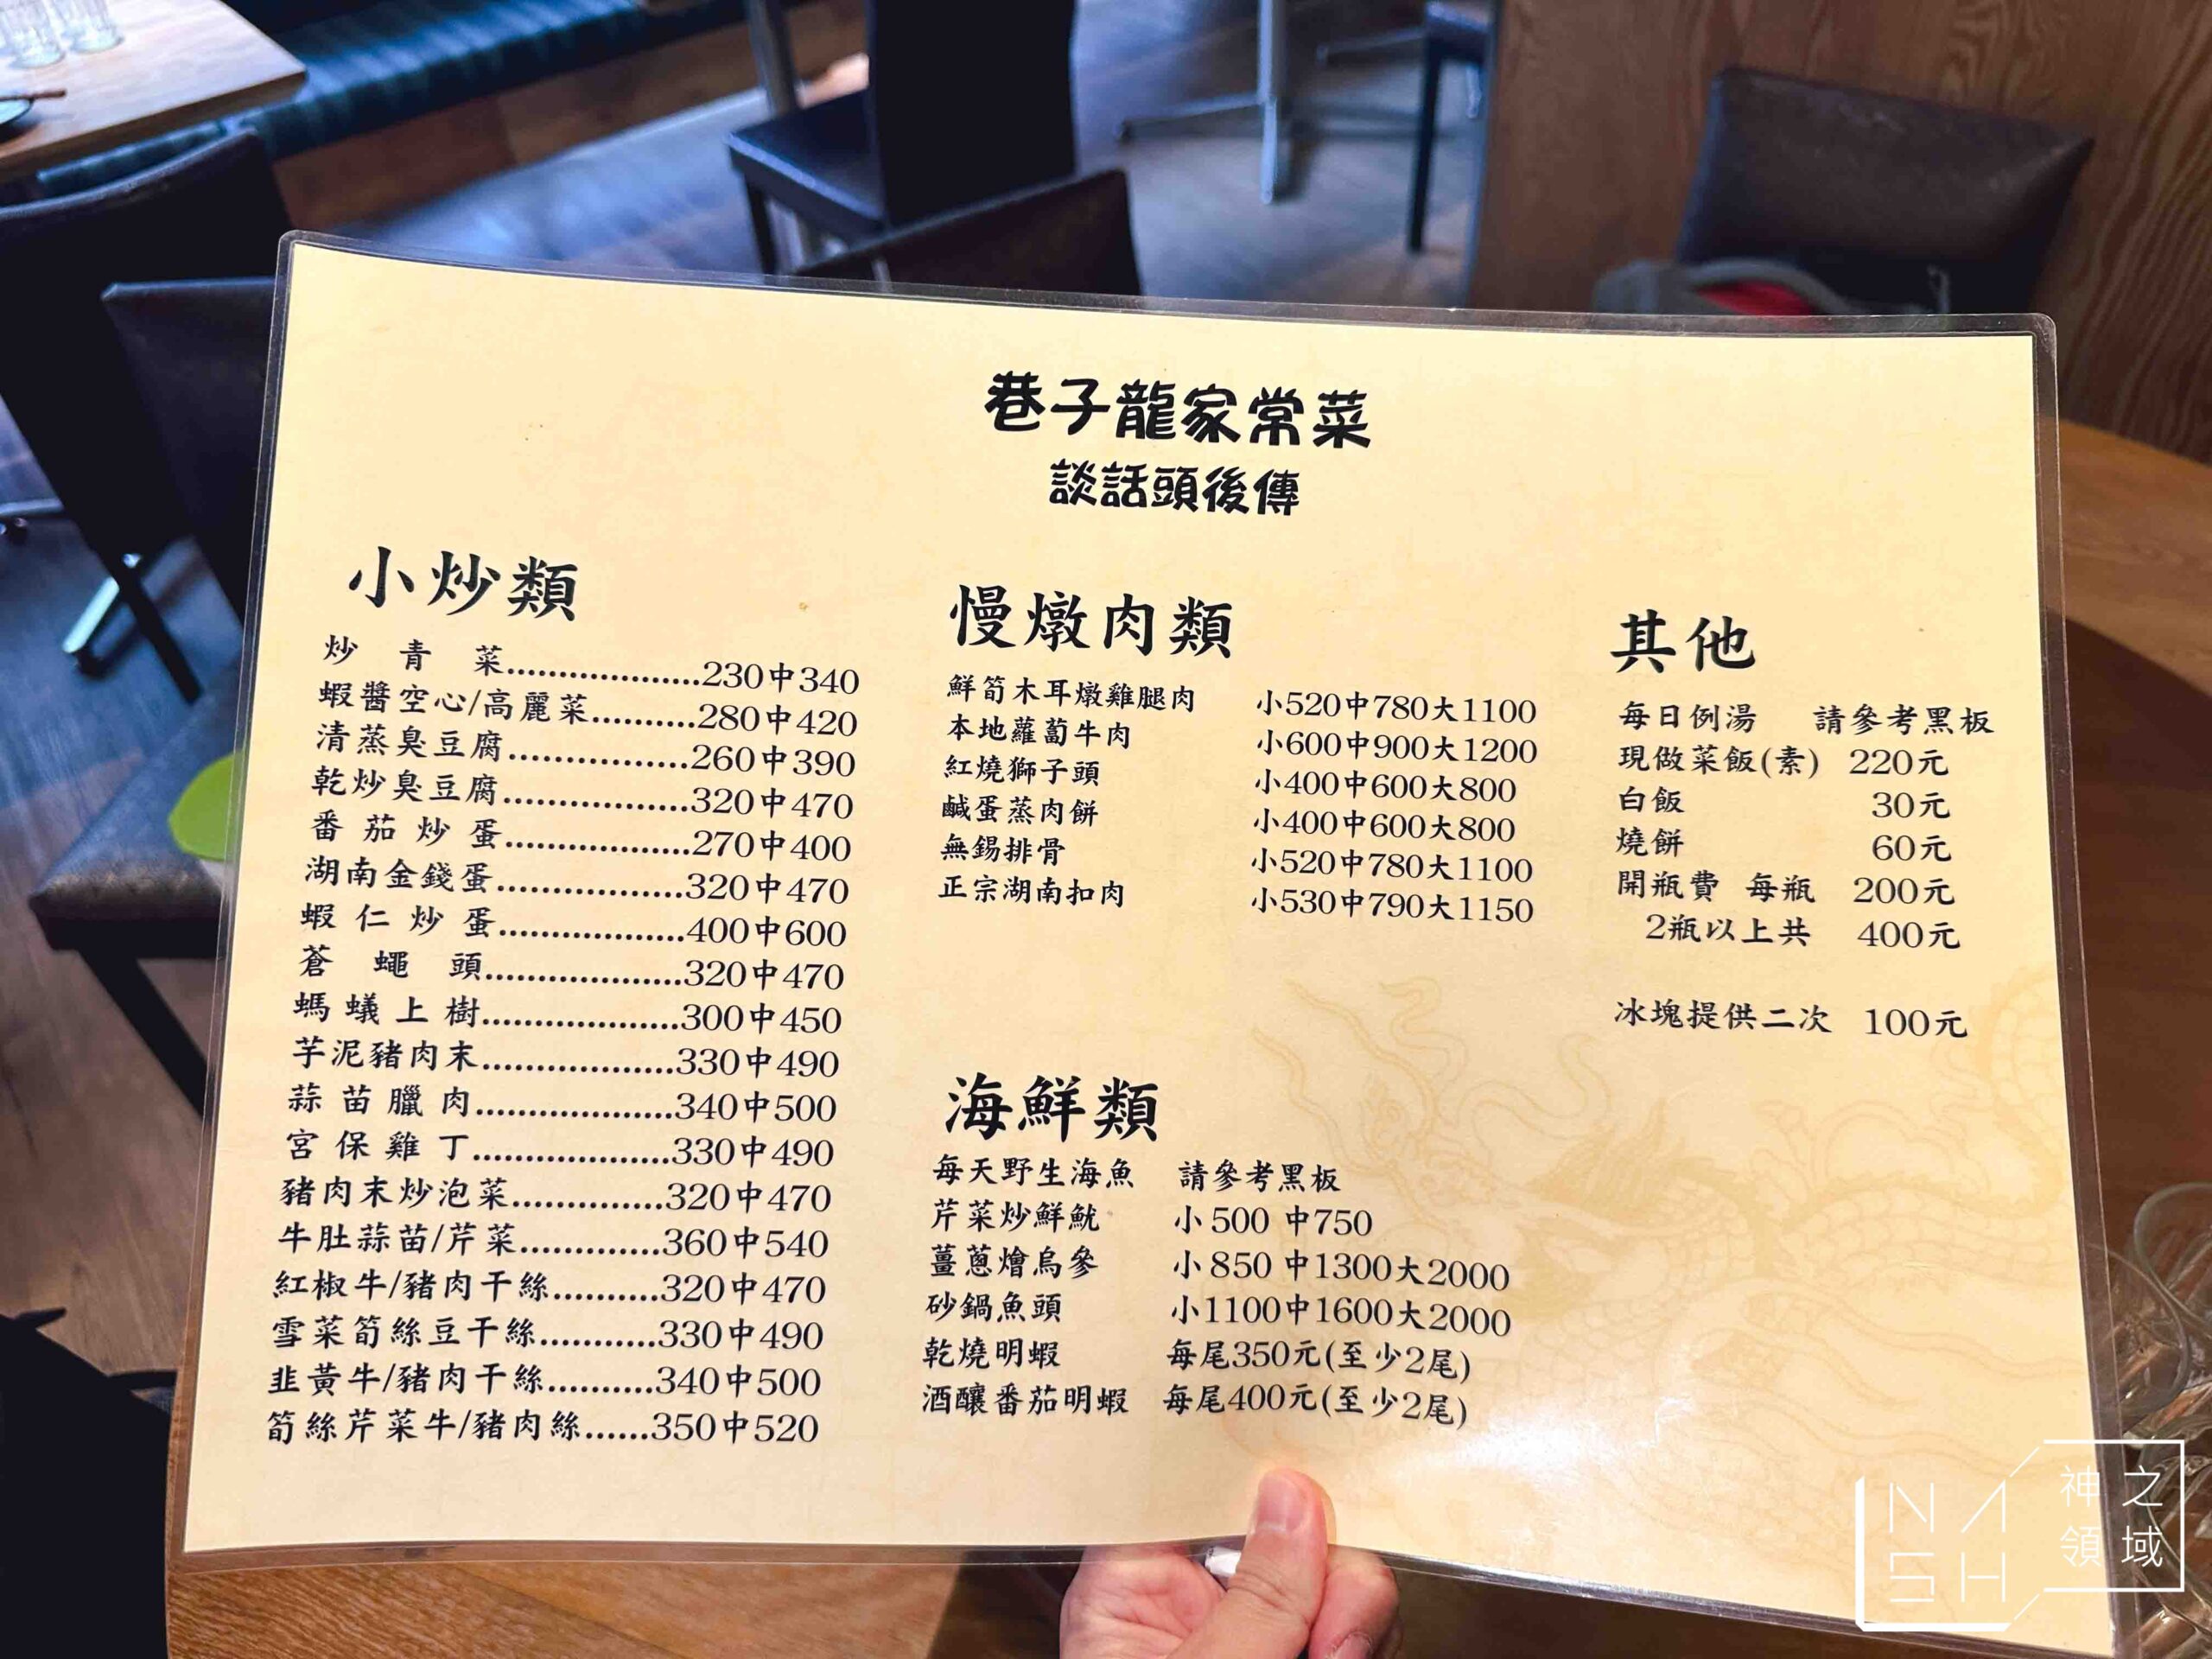 巷子龍家常菜
談話頭後傳
小炒類
炒青菜....................230中340
蝦醬空心/高麗菜..........280中420
清蒸臭豆腐.................260中390
乾炒臭豆腐..................320中470
番茄炒蛋..................270中400
湖南金錢蛋..................320中470
蝦仁炒蛋..................400中600
蒼蠅頭...................320中470
螞蟻上樹...................300中450
芋泥豬肉末...................330中490
蒜苗臘肉...................340中500
宮保雞丁...................330中490
豬肉末炒泡菜...............320中470
牛肚蒜苗/芹菜..............360中540
紅椒牛/豬肉干絲..........320中470
雪菜筍絲豆干絲...........330中490
韭黃牛/豬肉干絲..........340中500
筍絲芹菜牛/豬肉絲......350中520
慢燉肉類
鮮筍木耳燉雞腿肉 小520中780大1100
本地蘿蔔牛肉 小600中900大1200
紅燒獅子頭 小400中600大800
鹹蛋蒸肉餅 小400中600大800
無錫排骨 小520中780大1100
正宗湖南扣肉 小530中790大1150
海鮮類
每天野生海魚 請參考黑板
芹菜炒鮮魷 小500 中750
薑蔥燴烏參 小850 中1300大2000
砂鍋魚頭 小1100中1600大2000
乾燒明蝦 每尾350元(至少2尾)
酒釀番茄明蝦 每尾400元(至少2尾)
其他
每日例湯 請參考黑板
現做菜飯(素) 220元
白飯 30元
燒餅 60元
開瓶費 每瓶 200元
2瓶以上共 400元
冰塊提供二次 100元
NASH
神之
領域